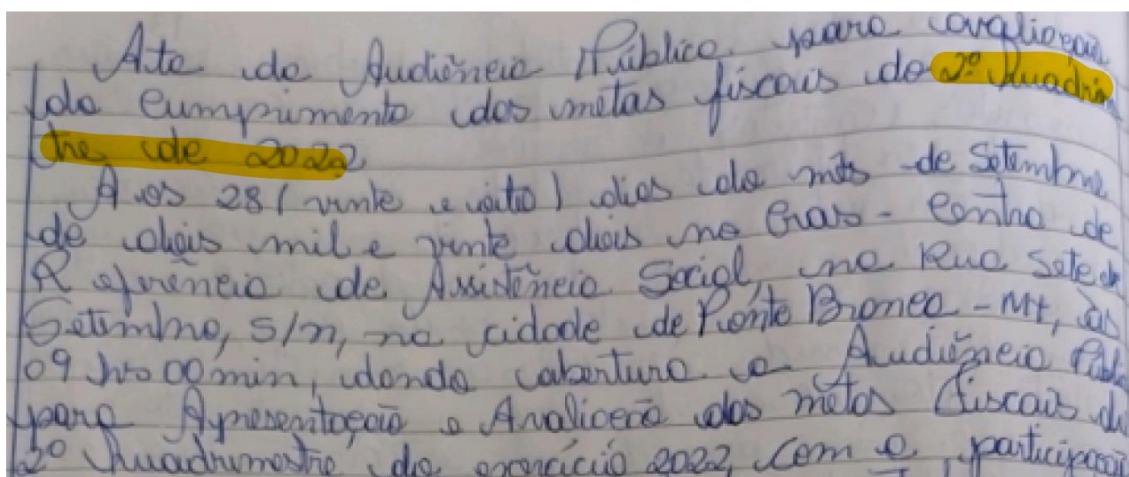 Ata da Audiência Pública para avaliação
do cumprimento das metas fiscais do 2º Quadrimes
tre de 2022
Aos 28 (vinte e oito) dias do mês de Setembro
de dois mil e vinte dois no Cras - Centro de
Referência de Assistência Social, na Rua Sete de
Setembro, s/n, na cidade de Ponte Branca - MT, às
09 hrs 00 min, dando abertura a Audiência Pública
para Apresentação e Avaliação das metas fiscais do
2º Quadrimestre do exercício 2022, com a participação